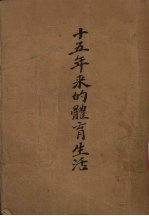 十五年来的體育生活